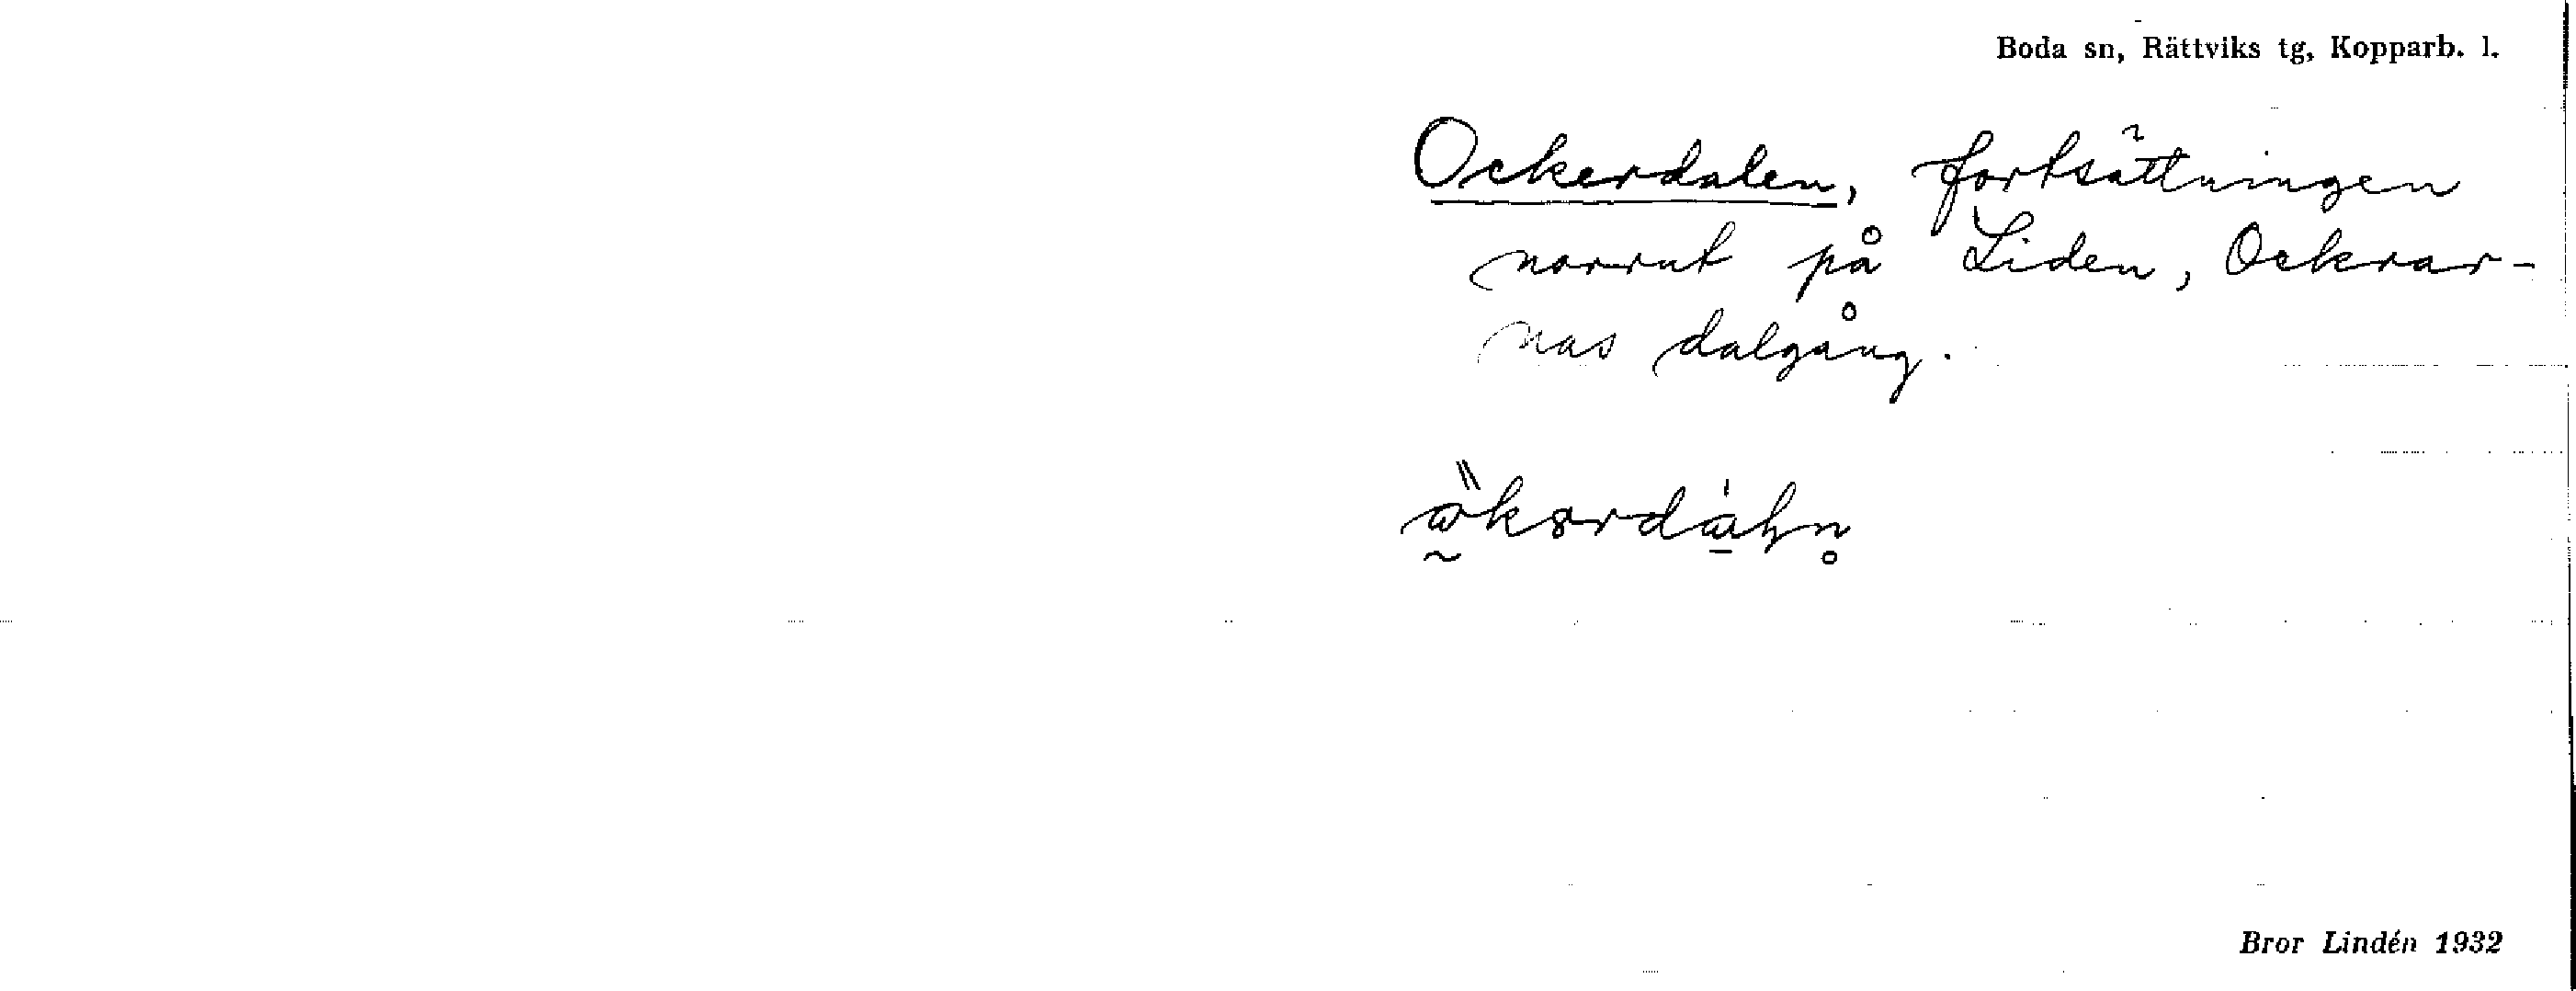 Boda sn, Rättviks tg, Kopparb. l.
Ockerdalen, fortsättningen
norrut på Liden, Ockrar-
nas dalgång.
Bror Lindén 1932